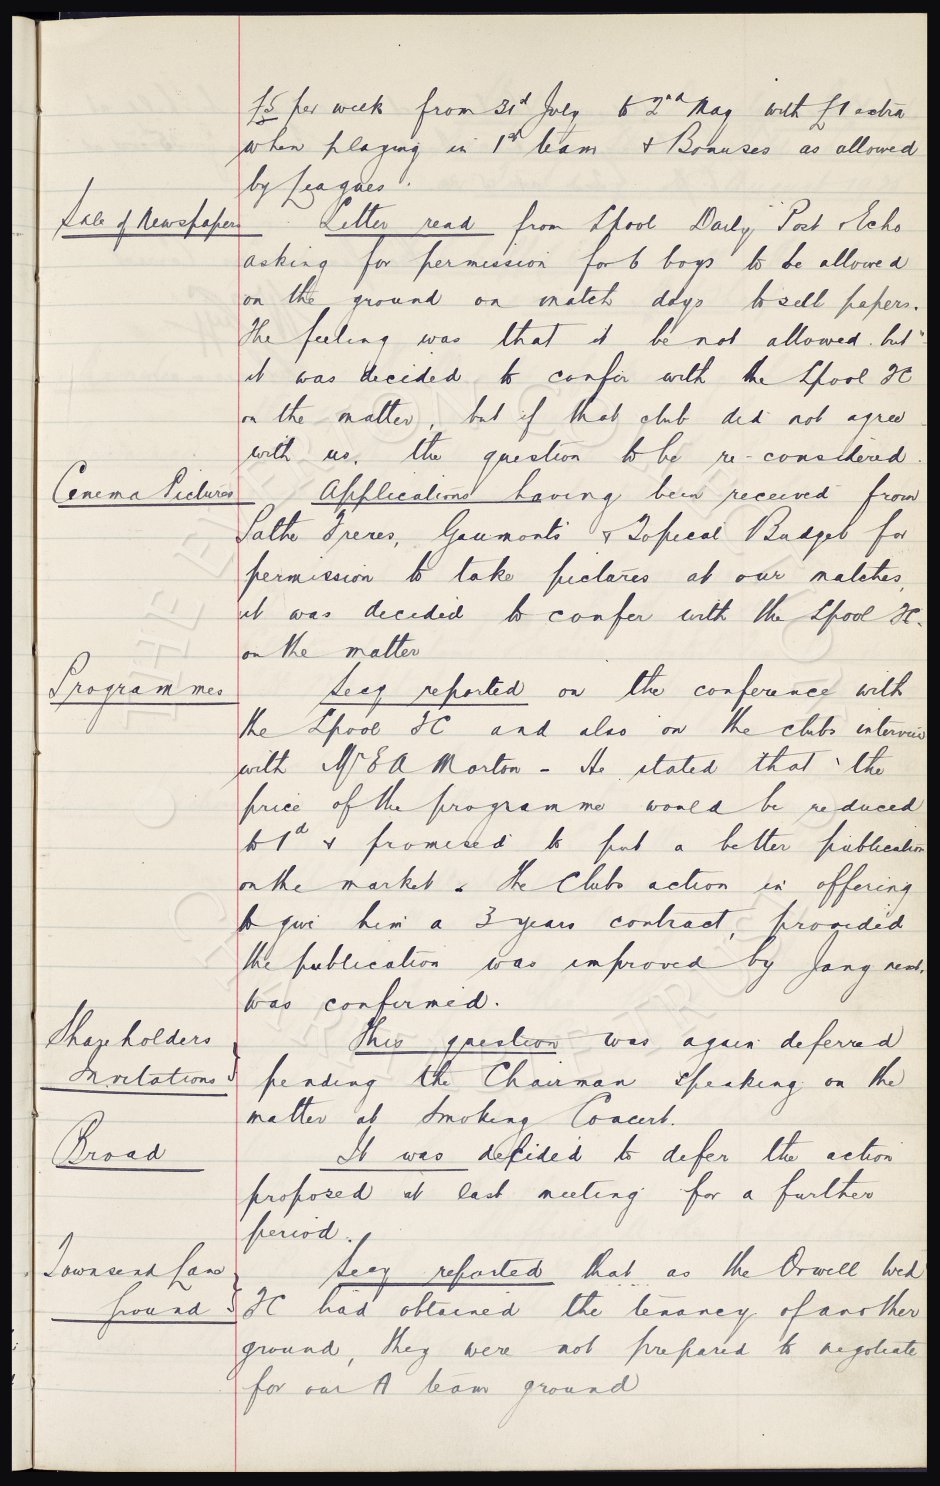 £5 per week from 31st July to 2nd May with £1 extra
when playing in 1st team & Bonuses as allowed
by Leagues.
Sale of Newspapers Letter read from Lpool Daily Post & Echo
asking for permission for 6 boys to be allowed
on the ground on match days to sell papers.
The feeling was that it be not allowed. but
it was decided to confer with the Lpool FC
on the matter, but if that club did not agree
with us, the question to be re-considered.
Cenema Pictures Applications having been received from
Pathe Freres, Gaumonts & Topical Budget for
permission to take pictures at our matches,
it was decided to confer with the Lpool FC.
on the matter
Programmes Secy reported on the conference with
the Lpool FC and also on the clubs interview
with Mr E A Morton - He stated that the
price of the programme would be reduced
to 1d & promised to put a better publication
on the market. The Clubs action in offering
to give him a 3 years contract, provided
the publication was improved by Jany next,
was confirmed.
Shareholders This question was again deferred
Invitations } pending the Chairman speaking on the
matter at Smoking Concert.
Broad It was decided to defer the action
proposed at last meeting for a further
period.
Townsend Lane Secy reported that as the Orwell Wed
ground } FC had obtained the tenancy of another
ground, they were not prepared to negotiate
for our A team ground
THE EVERTON COLLECTION CHARITABLE TRUST